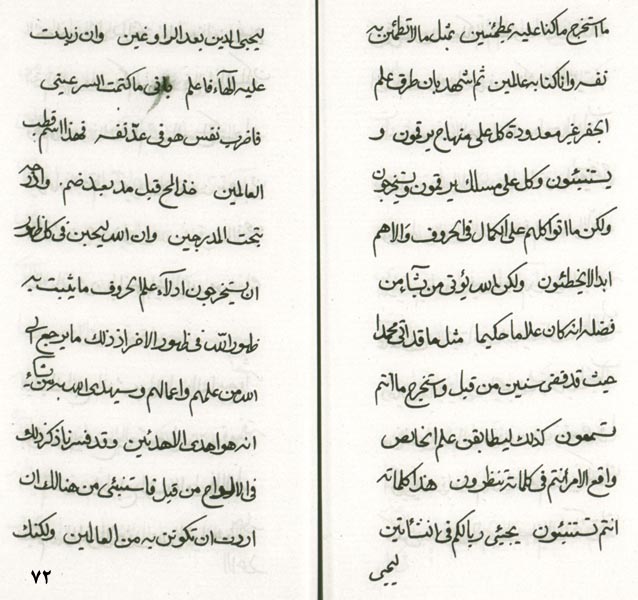 ما استخرج ما كنا عليه بمطمئنين بمثل ما لا تطمئن به
نفسه وانا كنا به عالمين ثم اشهد بان طرق علم
الجفر غير معدودة كل على منهاج يرقمون و
يستنبئون وكل على مسلك يرقمون ويستخرجون
ولكن ما اتوا كلهم على الكمال في الحروف والا هم
ابدا لا يخطئون ولكن الله يؤتى من يشاء من
فضله انه كان علاما حكيما مثل ما قد اتى محمدا
حيث قد قضى سنين من قبل واستخرج ما انتم
تسمعون كذلك ليطابقن علم الخالص
واقع الامر انتم في كلماته تنظرون هذا كلماته
انتم تستنبئون يجيئى ربا لكم في النشأتين
ليحيى
ليحيى الدين بعد الرا وغين وان زيدت
عليه الهاء فاعلم بانى ما كتمت السر عينى
فاضرب نفس هو في عد نفسه فهذا اسم قطب
العالمين خذ المح قبل مد بعد ضم وادرجه
بتحت المدرجين وان الله ليحبن في كل ظهور
ان يستخرجون ادلاء علم الحروف ما يثبت به
ظهور الله في ظهور الاخر اذ ذلك ما يرجع الى
الله من علمهم واعمالهم وسيهدى الله به من يشاء
انه هو اهدى الاهدئين وقد فسرنا ذكر ذلك
في الالواح من قبل فاستنبئى من هنالك ان
اردت ان تكونن به من العالمين ولكنك
٧٢